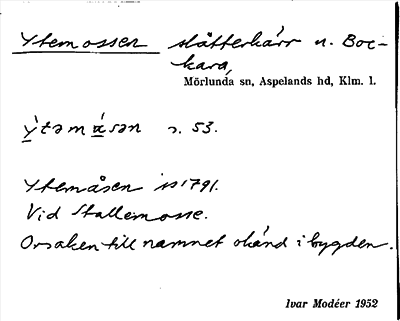 Ytemossen slåtterkärr n. Boc-
kara,
Mörlunda sn, Aspelands hd, Klm. l.
ý̱təmɑ̱́sən s. 53.
Ytemåsen 1791.
Vid Stallemosse.
Orsaken till namnet okänd i bygden.
Ivar Modéer 1952